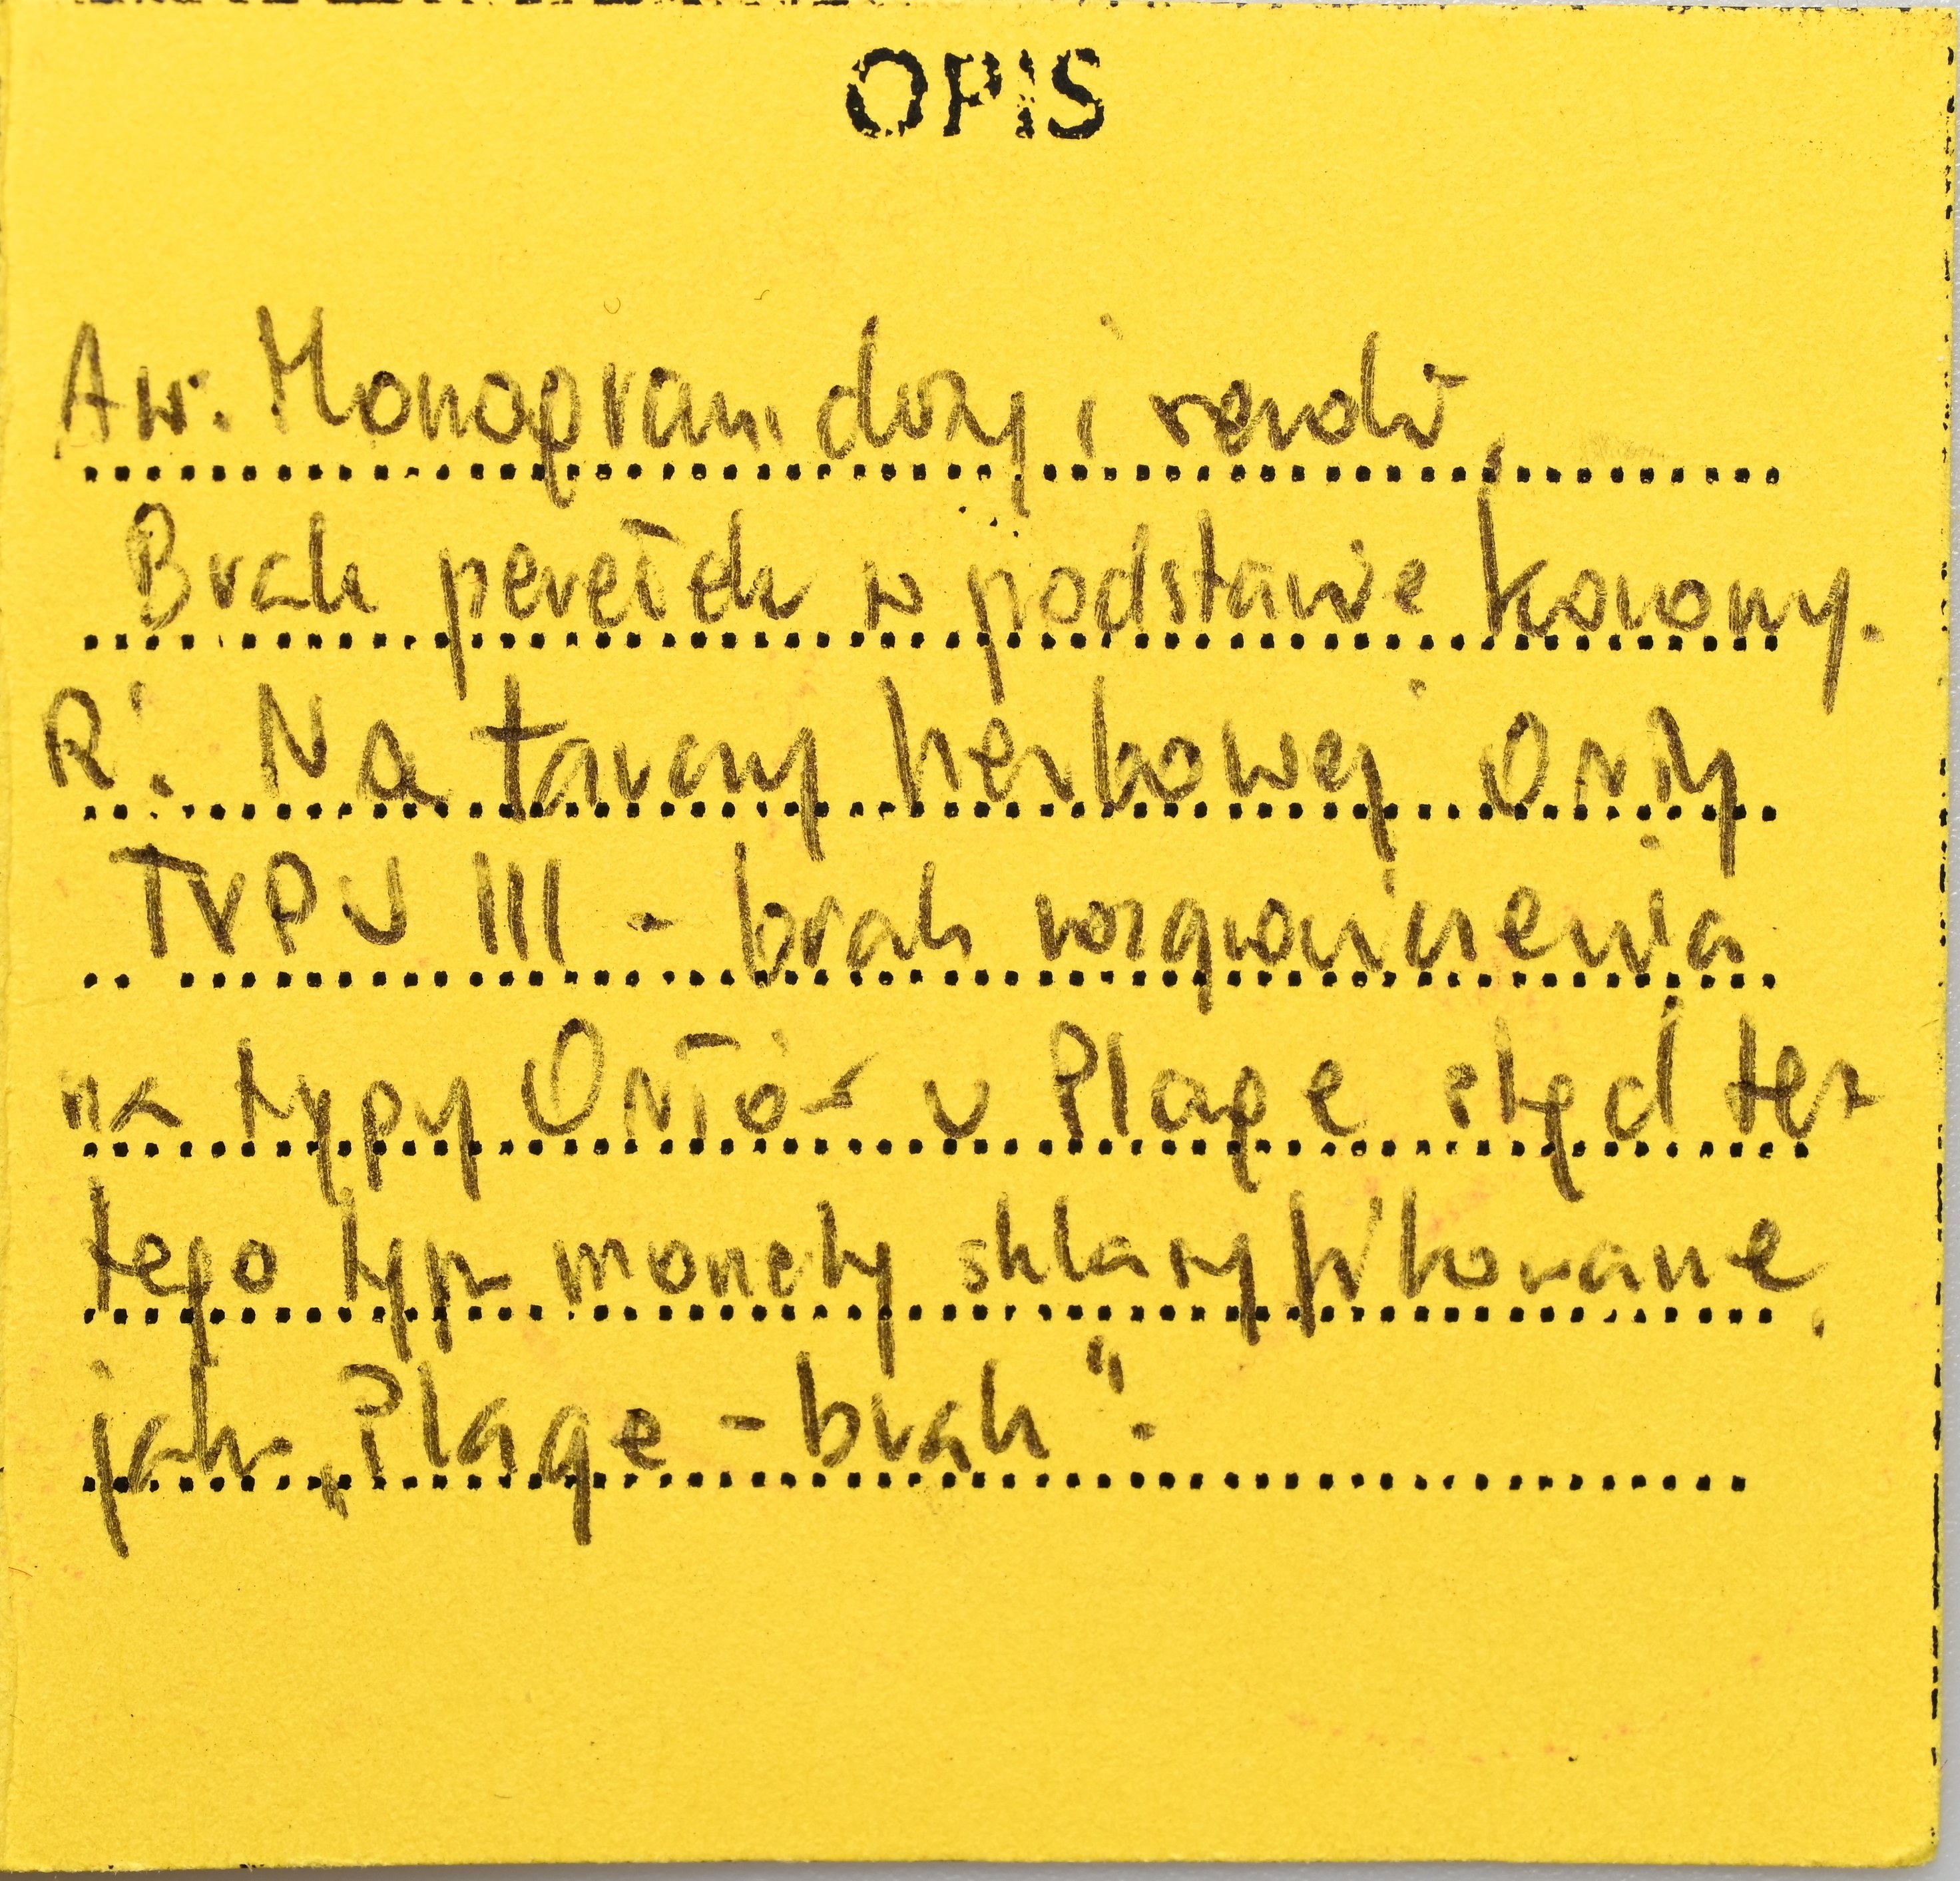 OPIS
Aw. Monogram duży i szeroki,
Brak perełek w podstawie korony.
R: Na tarczy herbowej Orły
TYPU III - brak rozgraniczenia
na typy Orłów u Plage stąd też
tego typu monety sklasyfikowane
jako „Plage - brak".